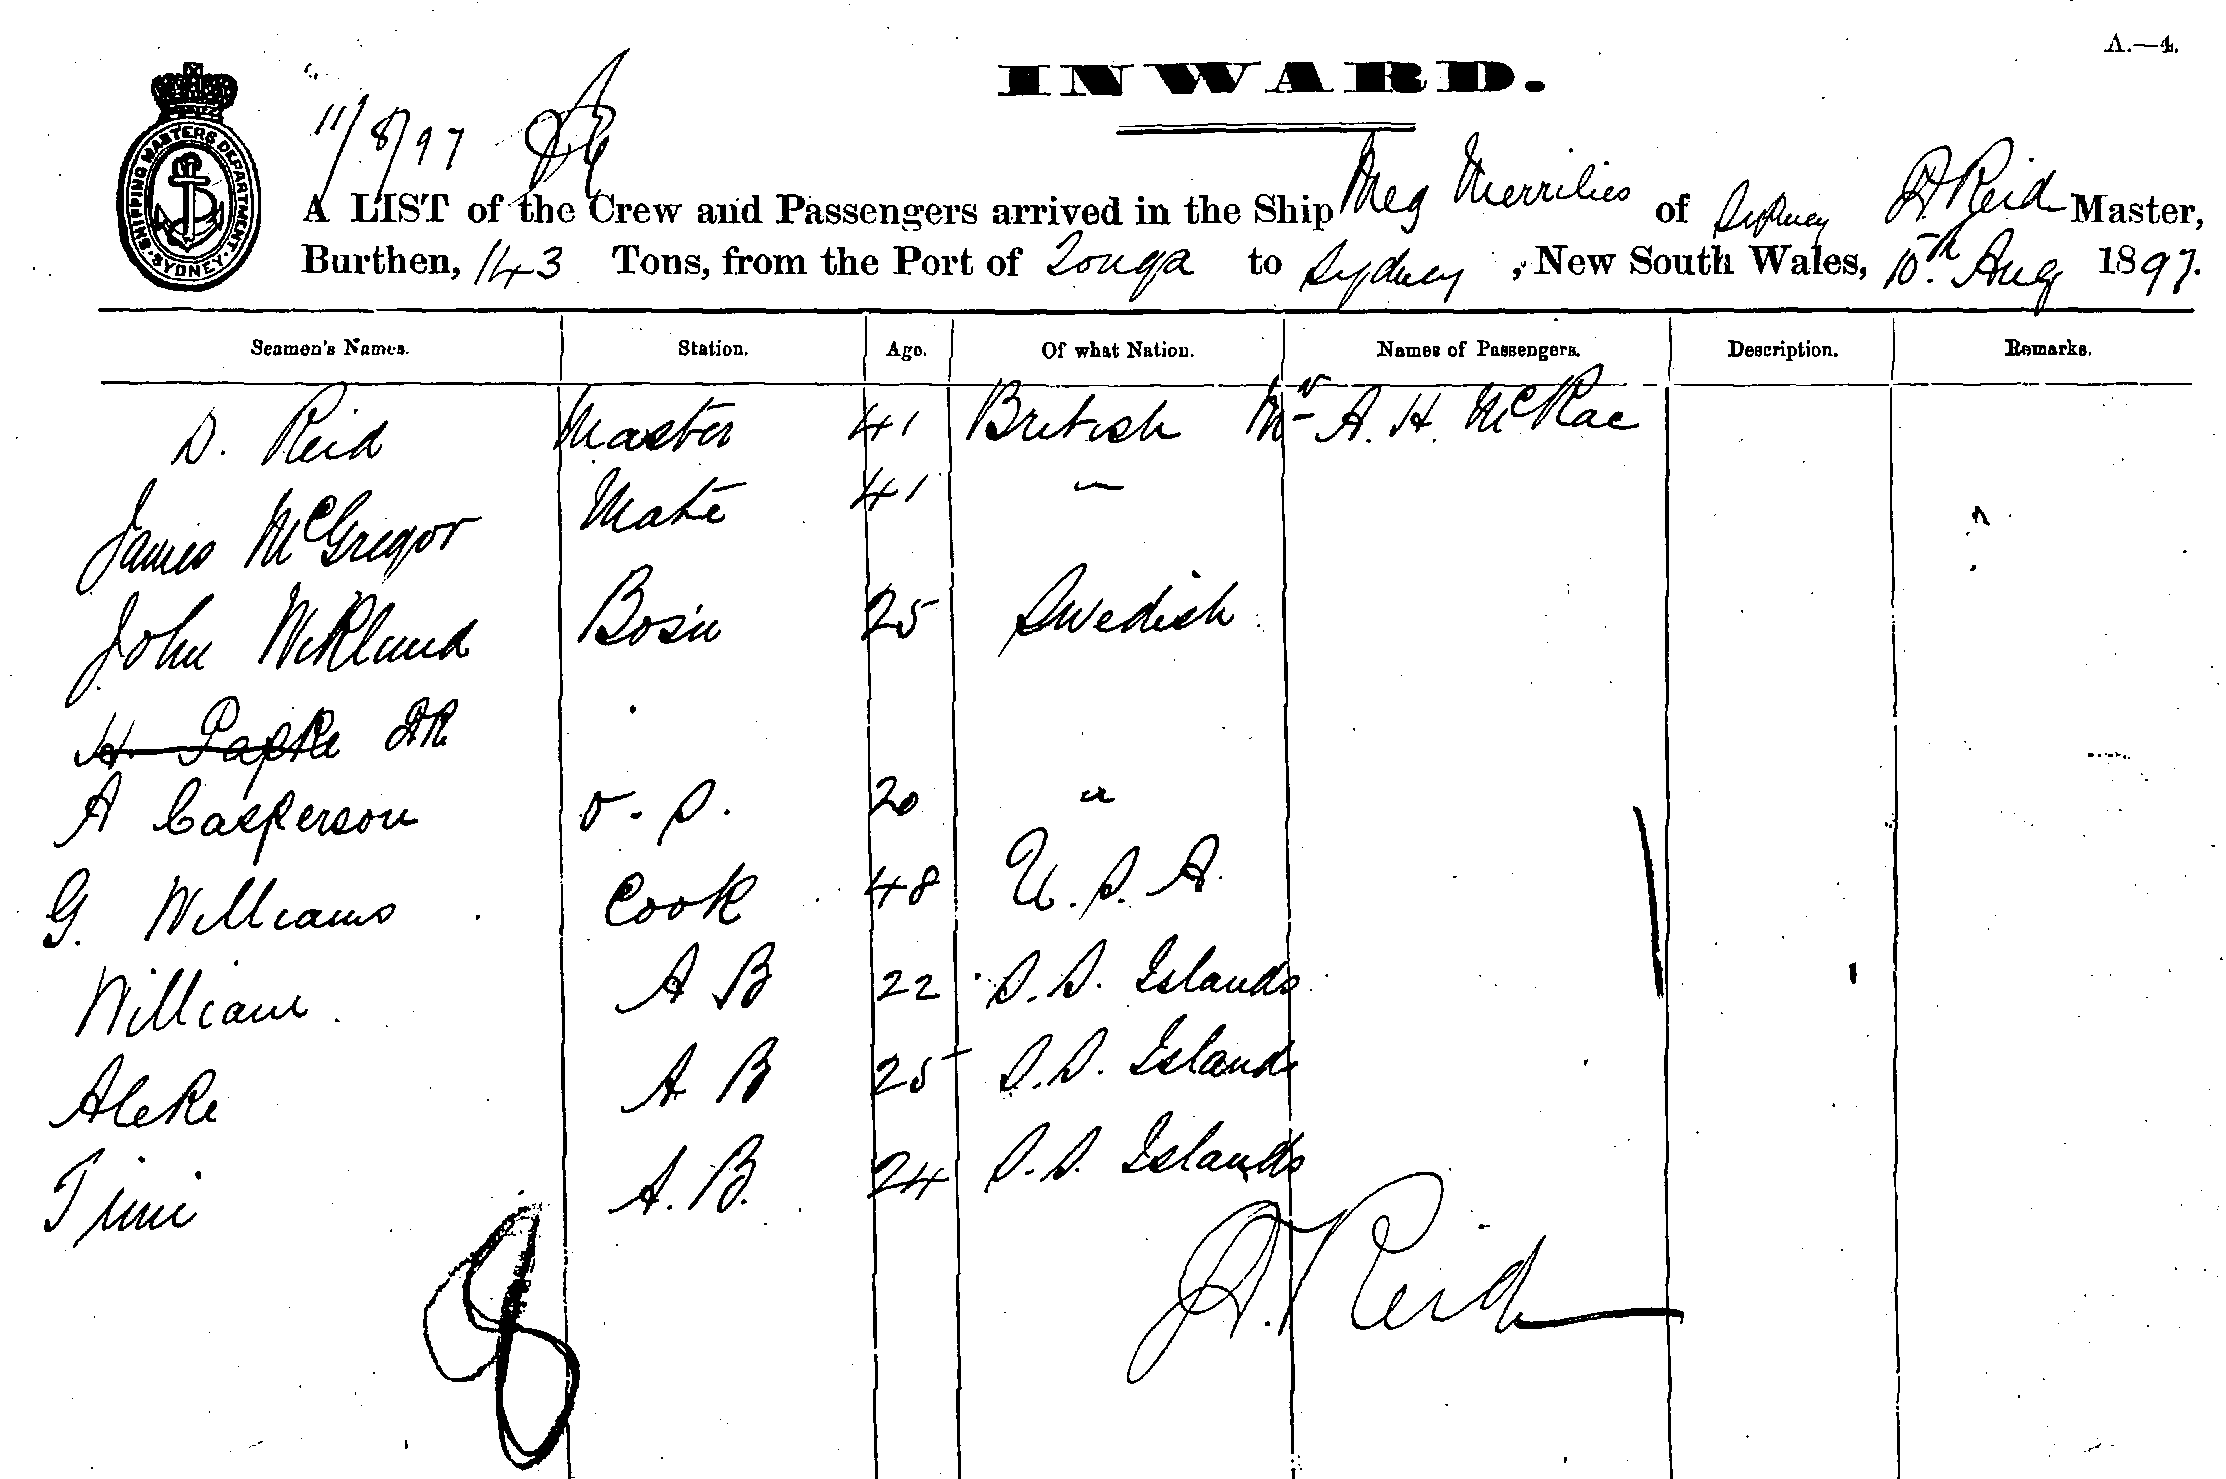 A.—4.
INWARD.
SHIPPING MASTERS DEPARTMENT. SYDNEY.
11/8/97
A LIST of the Crew and Passengers arrived in the Ship Meg Merrilies of Sydney D Reid Master,
Burthen, 143 Tons, from the Port of Tonga to Sydney, New South Wales, 10th Aug 1897.
Seamen's Names. Station. Age. Of what Nation. Names of Passengers. Description. Remarks.
D. Reid Master 41 British Mr A. H. McRae
James McGregor Mate 41 —
John Wiklund Bos'n 25 Swedish
H. Papke DR
A Casperson O. S. 20 "
G. Williams Cook 48 U. S. A.
William A B 22 S. S. Islands
Aleke A B 25 S. S. Islands
Timi A. B. 24 S. S. Islands
8
D. Reid